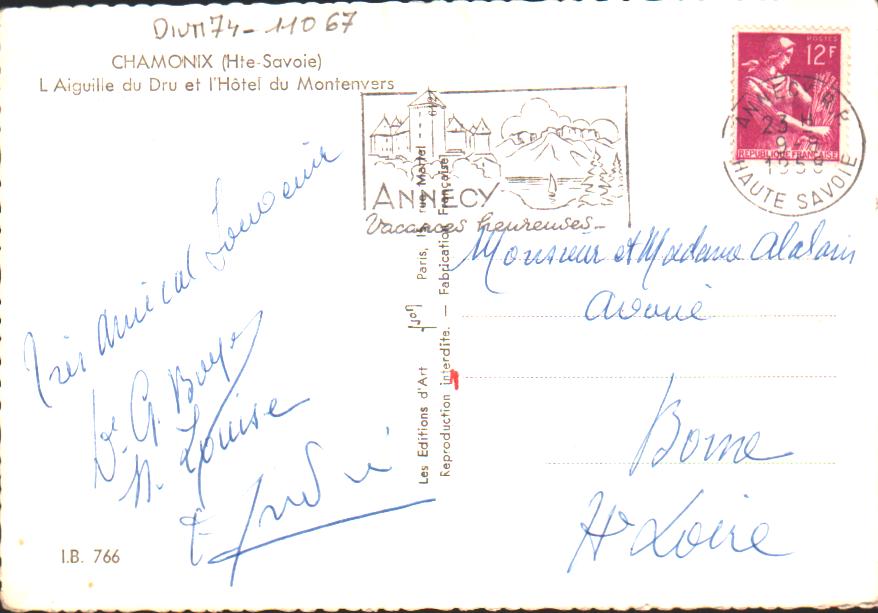 DIVM74-11067
CHAMONIX (Hte-Savoie)
L Aiguille du Dru et l'Hôtel du Montenvers
Très amical Souvenir
Dr G. Boyer
M. Louise
& André
I.B. 766
Les Editions d'Art Yvon Paris, 15, rue Martel
Reproduction interdite. — Fabrication Française
ANNECY
Vacances heureuses
POSTES
12F
REPUBLIQUE FRANÇAISE
ANNECY R.P.
23 H
9-9
1958
HAUTE SAVOIE
Monsieur et Madame
avoué
Borne
Hte Loire